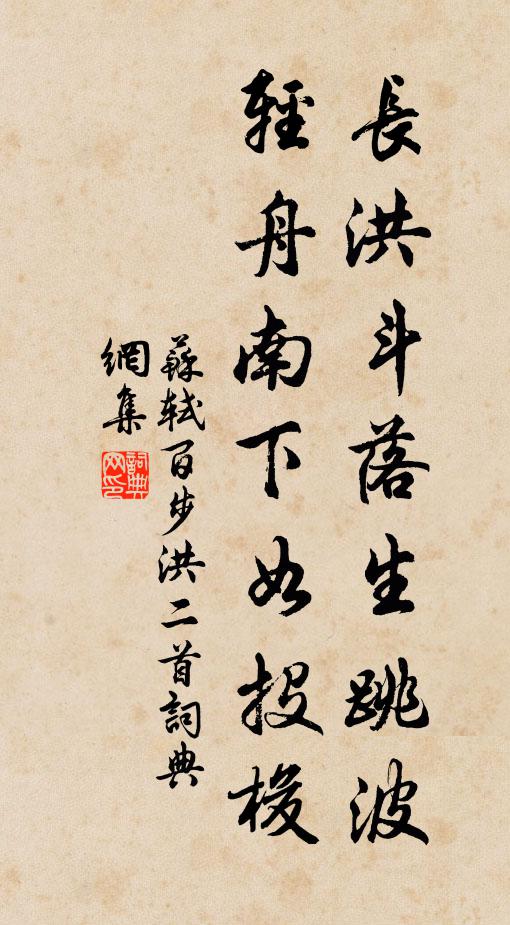 長洪斗落生跳波
輕舟南下如投梭
蘇軾百步洪二首詞典
網集
詞典
网印